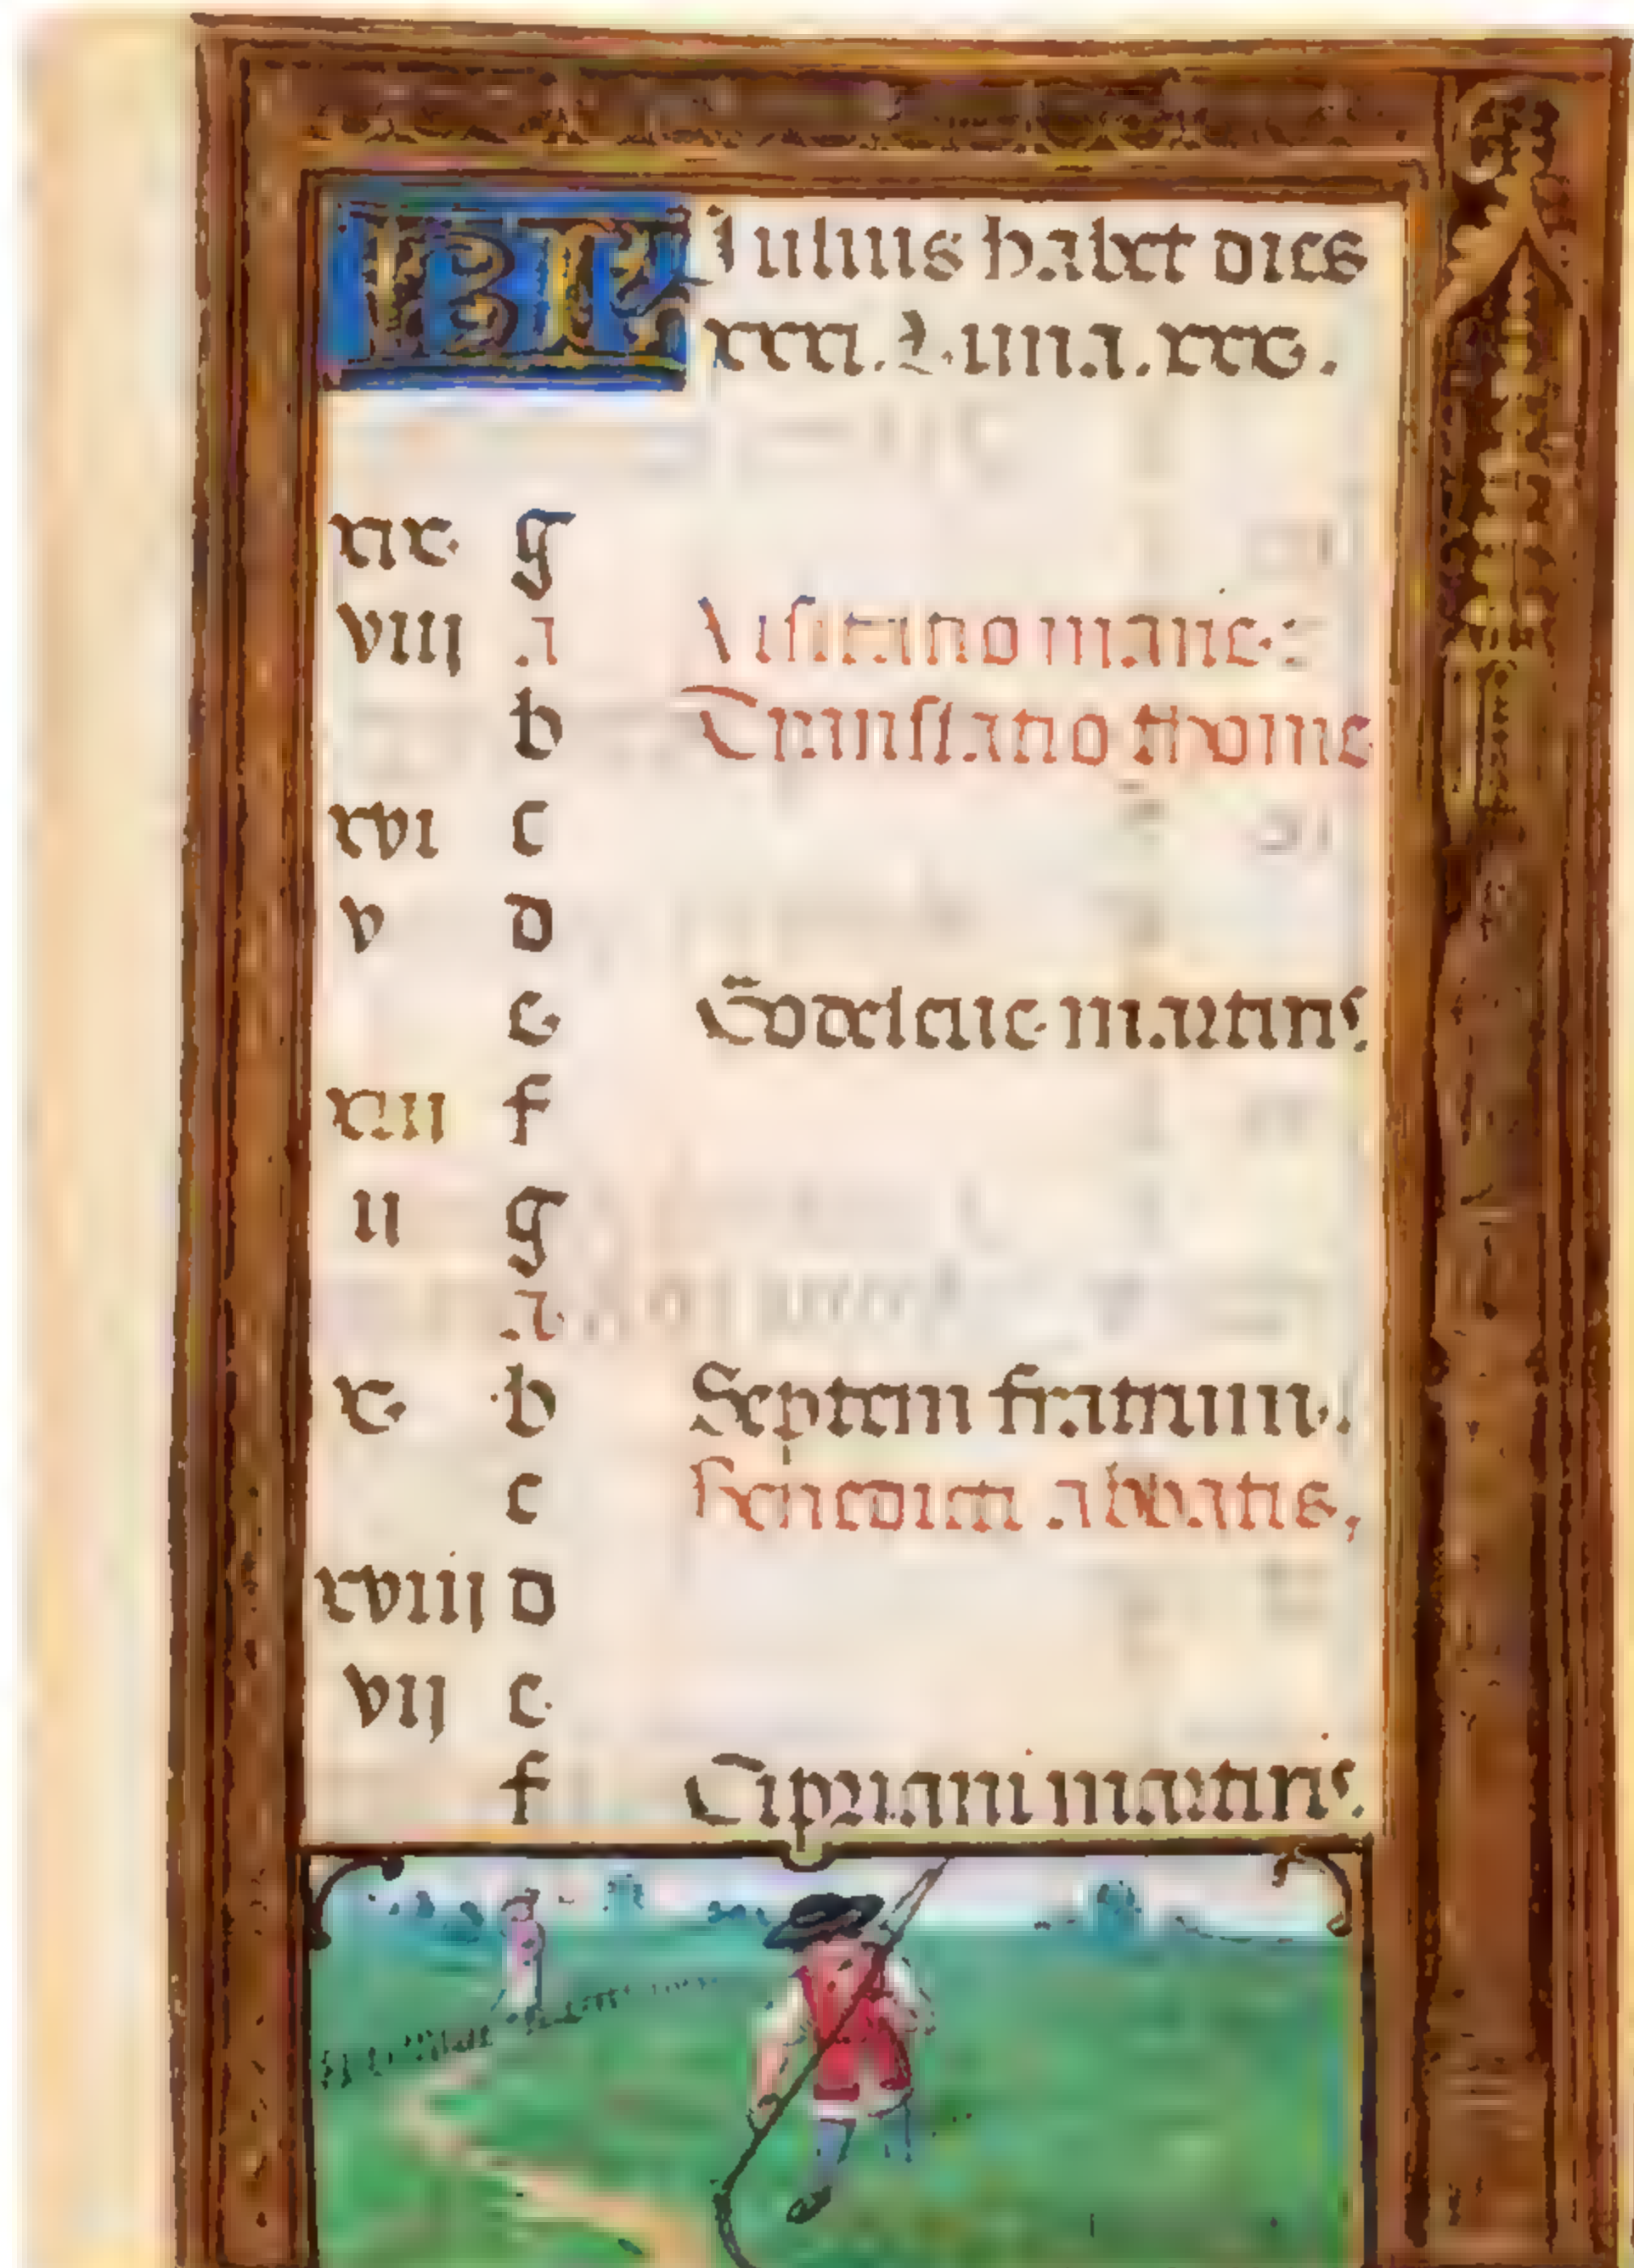 KL Iulius habet dies
xxxi. Luna. xxx.
xix g
viij a Visitatio marie
b Translatio thome
xvi c
v d
e Godeleue martiris
xiii f
ii g
a
x b Septem fratrum.
c Benedicti abbatis,
xviij d
vij e
f Cipriani martiris